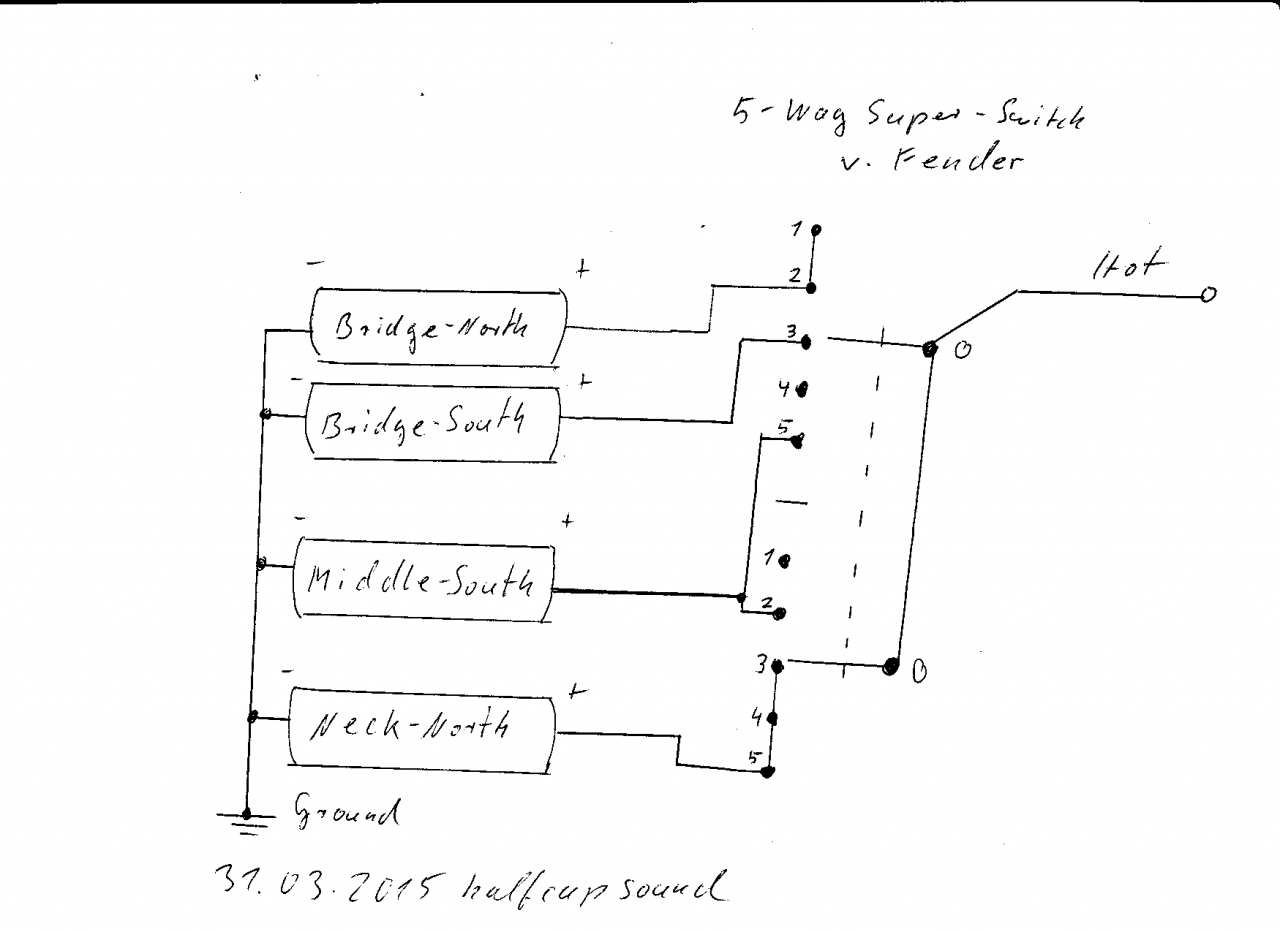 5-Way Super-Switch
v. Fender
1
Hot
- +
2
Bridge-North
3
0
- +
4
Bridge-South
5
- +
1
Middle-South
2
3
0
- +
Neck-North
4
5
Ground
31.03.2015 halfcupsound